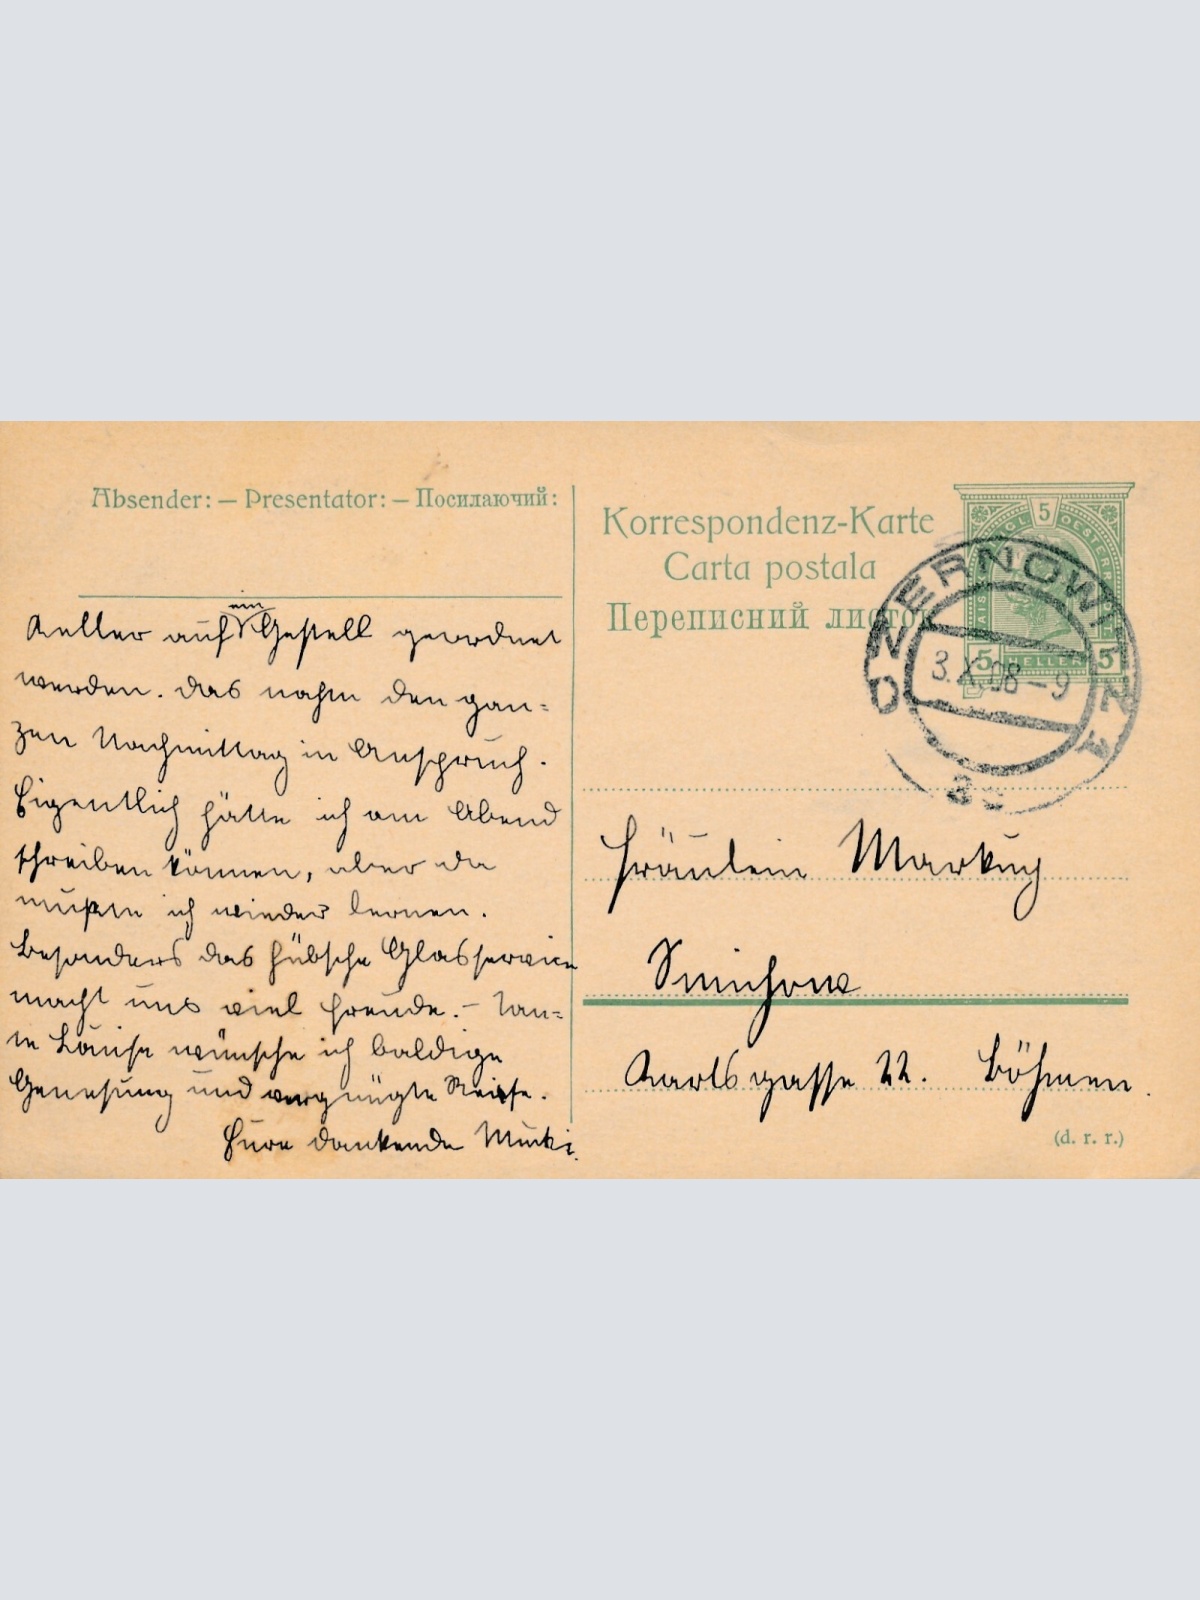 Absender: — Presentator: — Посилаючий:
Keller auf ein Gestell geordnet
werden. Das nahm den gan-
zen Nachmittag in Anspruch.
Eigentlich hätte ich am Abend
schreiben können, aber da
mußte ich wieder lernen.
Besonders das hübsche Glasservice
macht uns viel Freude. – Tan-
te Louise wünsche ich baldige
Genesung und vergnügte Reise.
Eure dankende Mucki.
Korrespondenz-Karte
Carta postala
Переписний листок
5
KAIS. KGL. OESTERR.
5 HELLER 5
CZERNOWITZ 1
3.X.08–9
Fräulein
Smichow
Karlsgasse 22. Böhmen.
(d. r. r.)